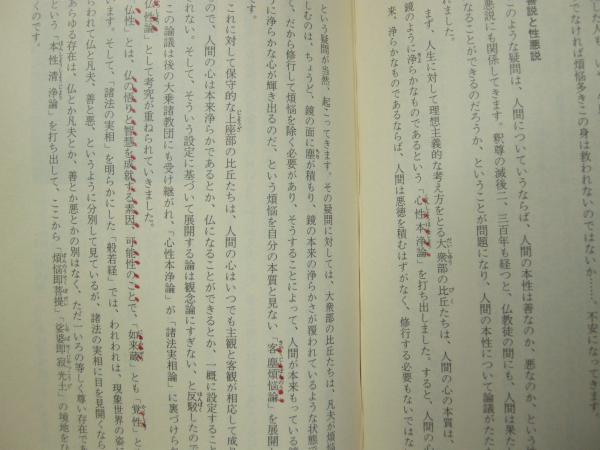 善説と性悪説
このような疑問は、人間についていうならば、人間の本性は善なのか、悪なのか、という
悪説にも関係してきます。釈尊の滅後二、三百年も経つと、仏教徒の間にも、人間は果た
なることができるのだろうか、ということが問題になり、人間の本性について論議がたたか
れました。
まず、人生に対して理想主義的な考え方をとる大衆部の比丘たちは、人間の心の本質は、
鏡のように浄らかなものであるという「心性本浄論」を打ち出しました。すると、人間の心
来、浄らかなものであるならば、人間は悪徳を積むはずがなく、修行する必要もないではな
という疑問が当然、起こってきます。その疑問に対しては、大衆部の比丘たちは、凡夫が煩悩
しむのは、ちょうど、鏡の面に塵が積もり、鏡の本来の浄らかさが覆われているような状態で
く、だから修行して煩悩を除く必要があり、そうすることによって、人間が本来もっている鏡
う浄らかな心が輝き出るのだ、という煩悩を自分の本質と見ない「客塵煩悩論」を展開し
す。
これに対して保守的な上座部の比丘たちは、人間の心はいつでも主観と客観が相応して成り
ので、人間の心は本来浄らかであるとか、仏になることができるとか、一概に設定すること
れない。そして、そういう設定に基づいて展開する論は観念論にすぎない、と反駁したので
この論議は後の大乗諸教団にも受け継がれ、「心性本浄論」が「諸法実相論」に裏づけられ
仏性論」として考究が重ねられていきました。
「仏性」とは、仏の悟りと智慧を成就する素因、可能性のことで、「如来蔵」とも「覚性」と
います。そして、「諸法の実相」を明らかにした『般若経』では、われわれは、現象世界の姿に
われて仏と凡夫、善と悪、というように分別して見ているが、諸法の実相に目を見開くなら
あらゆる存在は、仏とか凡夫とか、善とか悪とかの別はなく、ただ一いろの等しく尊い存在であ
という「本性清浄論」を打ち出して、ここから「煩悩即菩提」「娑婆即寂光土」の境地をひ
くのです。